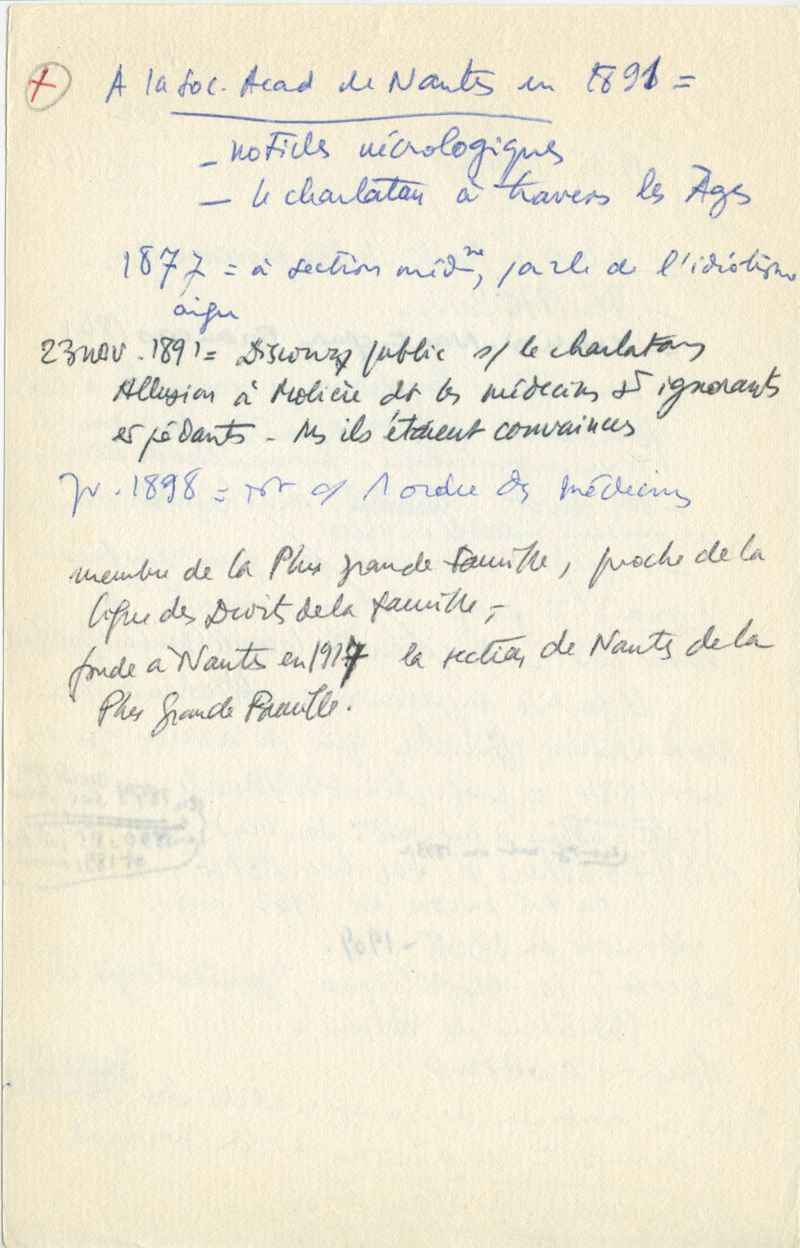 + A la Soc. Acad de Nantes en 1891 =
- notices nécrologiques
- le charlatan à travers les Âges
1877 = à section médne, parle de l'idiotisme
aigu
23 nov. 1891 = Discours public s/ le charlatans
Allusion à Molière dt les médecins st ignorants
et pédants - Ms ils étaient convaincus
Jv. 1898 = rôt s/ l'ordre des Médecins
membre de la Plus grande Famille, proche de la
ligue des Droits de la famille,-
fonde à Nantes en 1917 la section de Nantes de la
Plus Grande Famille.